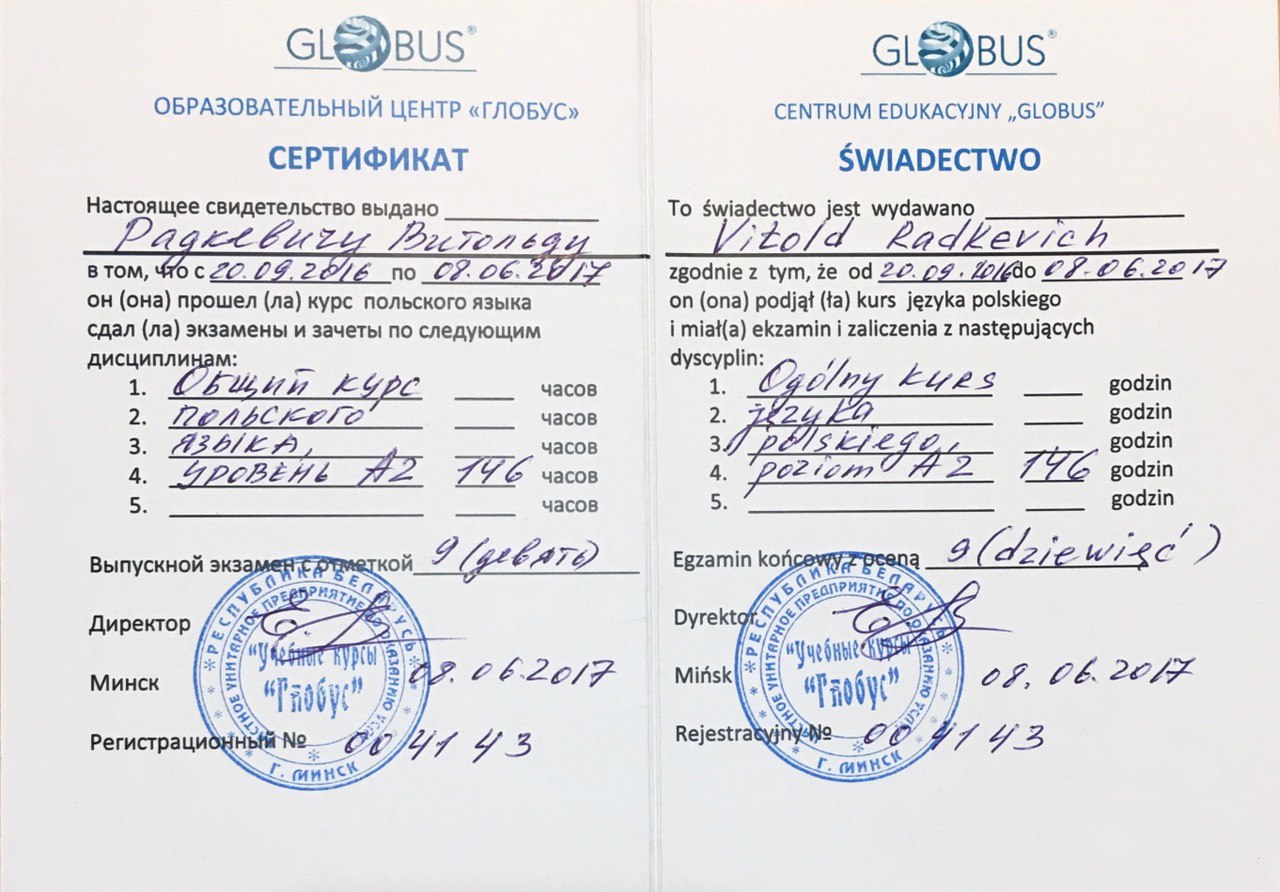 GLOBUS®
ОБРАЗОВАТЕЛЬНЫЙ ЦЕНТР «ГЛОБУС»
СЕРТИФИКАТ
Настоящее свидетельство выдано
Радкевичу Витольду
в том, что с 20.09.2016 по 08.06.2017
он (она) прошел (ла) курс польского языка
сдал (ла) экзамены и зачеты по следующим
дисциплинам:
1. Общий курс часов
2. польского часов
3. языка, часов
4. уровень А2 146 часов
5. часов
Выпускной экзамен с отметкой 9 (девять)
Директор
Минск 08.06.2017
Регистрационный № 004143
РЕСПУБЛИКА БЕЛАРУСЬ
ЧАСТНОЕ УНИТАРНОЕ ПРЕДПРИЯТИЕ ПО ОКАЗАНИЮ УСЛУГ
"Учебные курсы
"Глобус"
Г. МИНСК
GLOBUS®
CENTRUM EDUKACYJNY „GLOBUS”
ŚWIADECTWO
To świadectwo jest wydawano
Vitold Radkevich
zgodnie z tym, że od 20.09.2016 do 08.06.2017
on (ona) podjął (ła) kurs języka polskiego
i miał(a) ekzamin i zaliczenia z następujących
dyscyplin:
1. Ogólny kurs godzin
2. języka godzin
3. polskiego, godzin
4. poziom A2 146 godzin
5. godzin
Egzamin końcowy z oceną 9 (dziewięć)
Dyrektor
Mińsk 08.06.2017
Rejestracyjny № 004143
РЕСПУБЛИКА БЕЛАРУСЬ
ЧАСТНОЕ УНИТАРНОЕ ПРЕДПРИЯТИЕ ПО ОКАЗАНИЮ УСЛУГ
"Учебные курсы
"Глобус"
Г. МИНСК